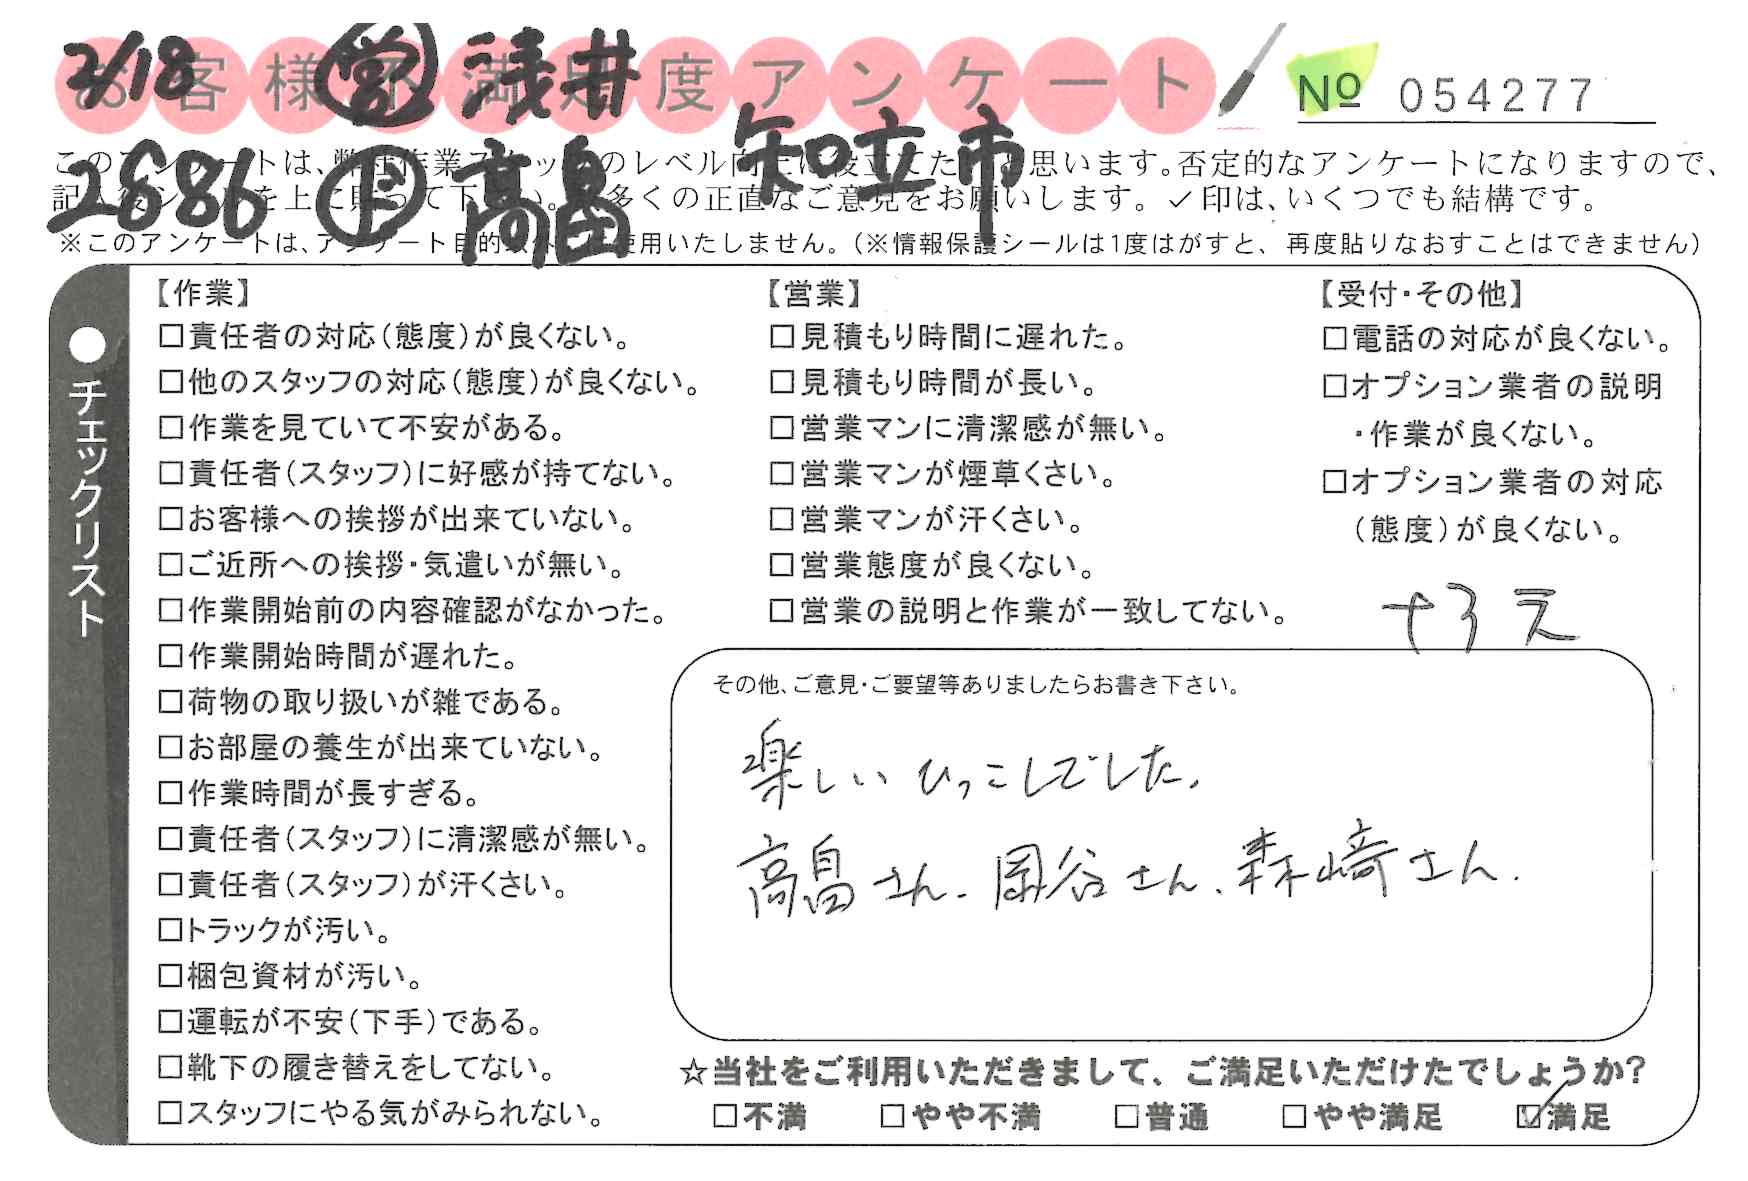 2/18 営 浅井
お客様不満足度アンケート
№ 054277
2686 ド 高畠 知立市
このアンケートは、弊社作業スタッフのレベル向上に役立てたいと思います。否定的なアンケートになりますので、
記入後シールを上に貼って下さい。 多くの正直なご意見をお願いします。✓印は、いくつでも結構です。
※このアンケートは、アンケート目的以外には使用いたしません。(※情報保護シールは1度はがすと、再度貼りなおすことはできません)
●チェックリスト
【作業】
□責任者の対応(態度)が良くない。
□他のスタッフの対応(態度)が良くない。
□作業を見ていて不安がある。
□責任者(スタッフ)に好感が持てない。
□お客様への挨拶が出来ていない。
□ご近所への挨拶・気遣いが無い。
□作業開始前の内容確認がなかった。
□作業開始時間が遅れた。
□荷物の取り扱いが雑である。
□お部屋の養生が出来ていない。
□作業時間が長すぎる。
□責任者(スタッフ)に清潔感が無い。
□責任者(スタッフ)が汗くさい。
□トラックが汚い。
□梱包資材が汚い。
□運転が不安(下手)である。
□靴下の履き替えをしてない。
□スタッフにやる気がみられない。
【営業】
□見積もり時間に遅れた。
□見積もり時間が長い。
□営業マンに清潔感が無い。
□営業マンが煙草くさい。
□営業マンが汗くさい。
□営業態度が良くない。
□営業の説明と作業が一致してない。
【受付・その他】
□電話の対応が良くない。
□オプション業者の説明
・作業が良くない。
□オプション業者の対応
(態度)が良くない。
その他、ご意見・ご要望等ありましたらお書き下さい。
楽しいひっこしでした。
高畠さん、岡谷さん、森崎さん.
☆当社をご利用いただきまして、ご満足いただけたでしょうか?
□不満 □やや不満 □普通 □やや満足 ☑満足